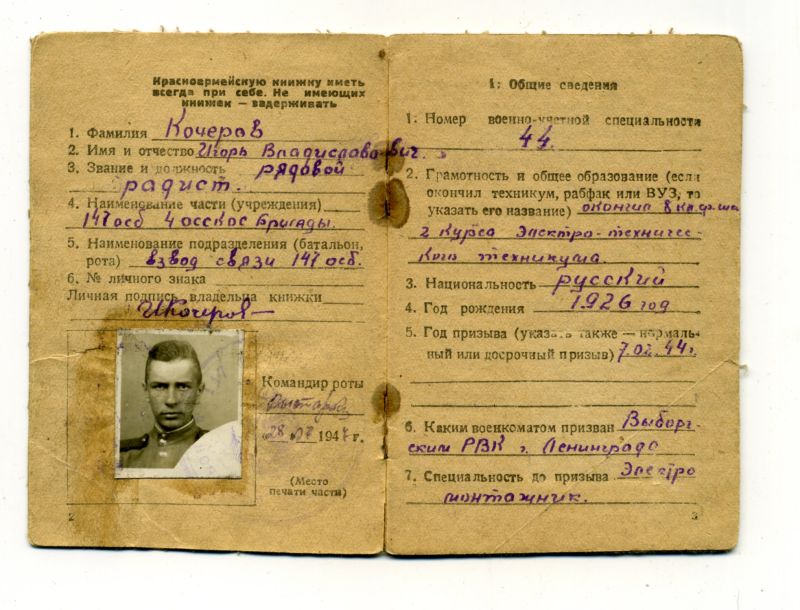 Красноармейскую книжку иметь
всегда при себе. Не имеющих
книжек — задерживать
1. Фамилия Кочеров
2. Имя и отчество Игорь Владиславович.
3. Звание и должность рядовой
радист.
4. Наименование части (учреждения)
147 осб 4 осскос Бригады.
5. Наименование подразделения (батальон,
рота) взвод связи 147 осб.
6. № личного знака
Личная подпись владельца книжки
ИКочеров
Командир роты
„28" 194 г.
(Место
печати части)
2
I: Общие сведения
1. Номер военно-учетной специальности
44.
2. Грамотность и общее образование (если
окончил техникум, рабфак или ВУЗ, то
указать его название) окончил 8 кл.
2 курса Электро-техничес-
кого техникума.
3. Национальность русский
4. Год рождения 1926 год
5. Год призыва (указать также — нормаль-
ный или досрочный призыв) 44 г.
6. Каким военкоматом призван Выборг-
ским РВК г. Ленинграда
7. Специальность до призыва Электро
монтажник.
3